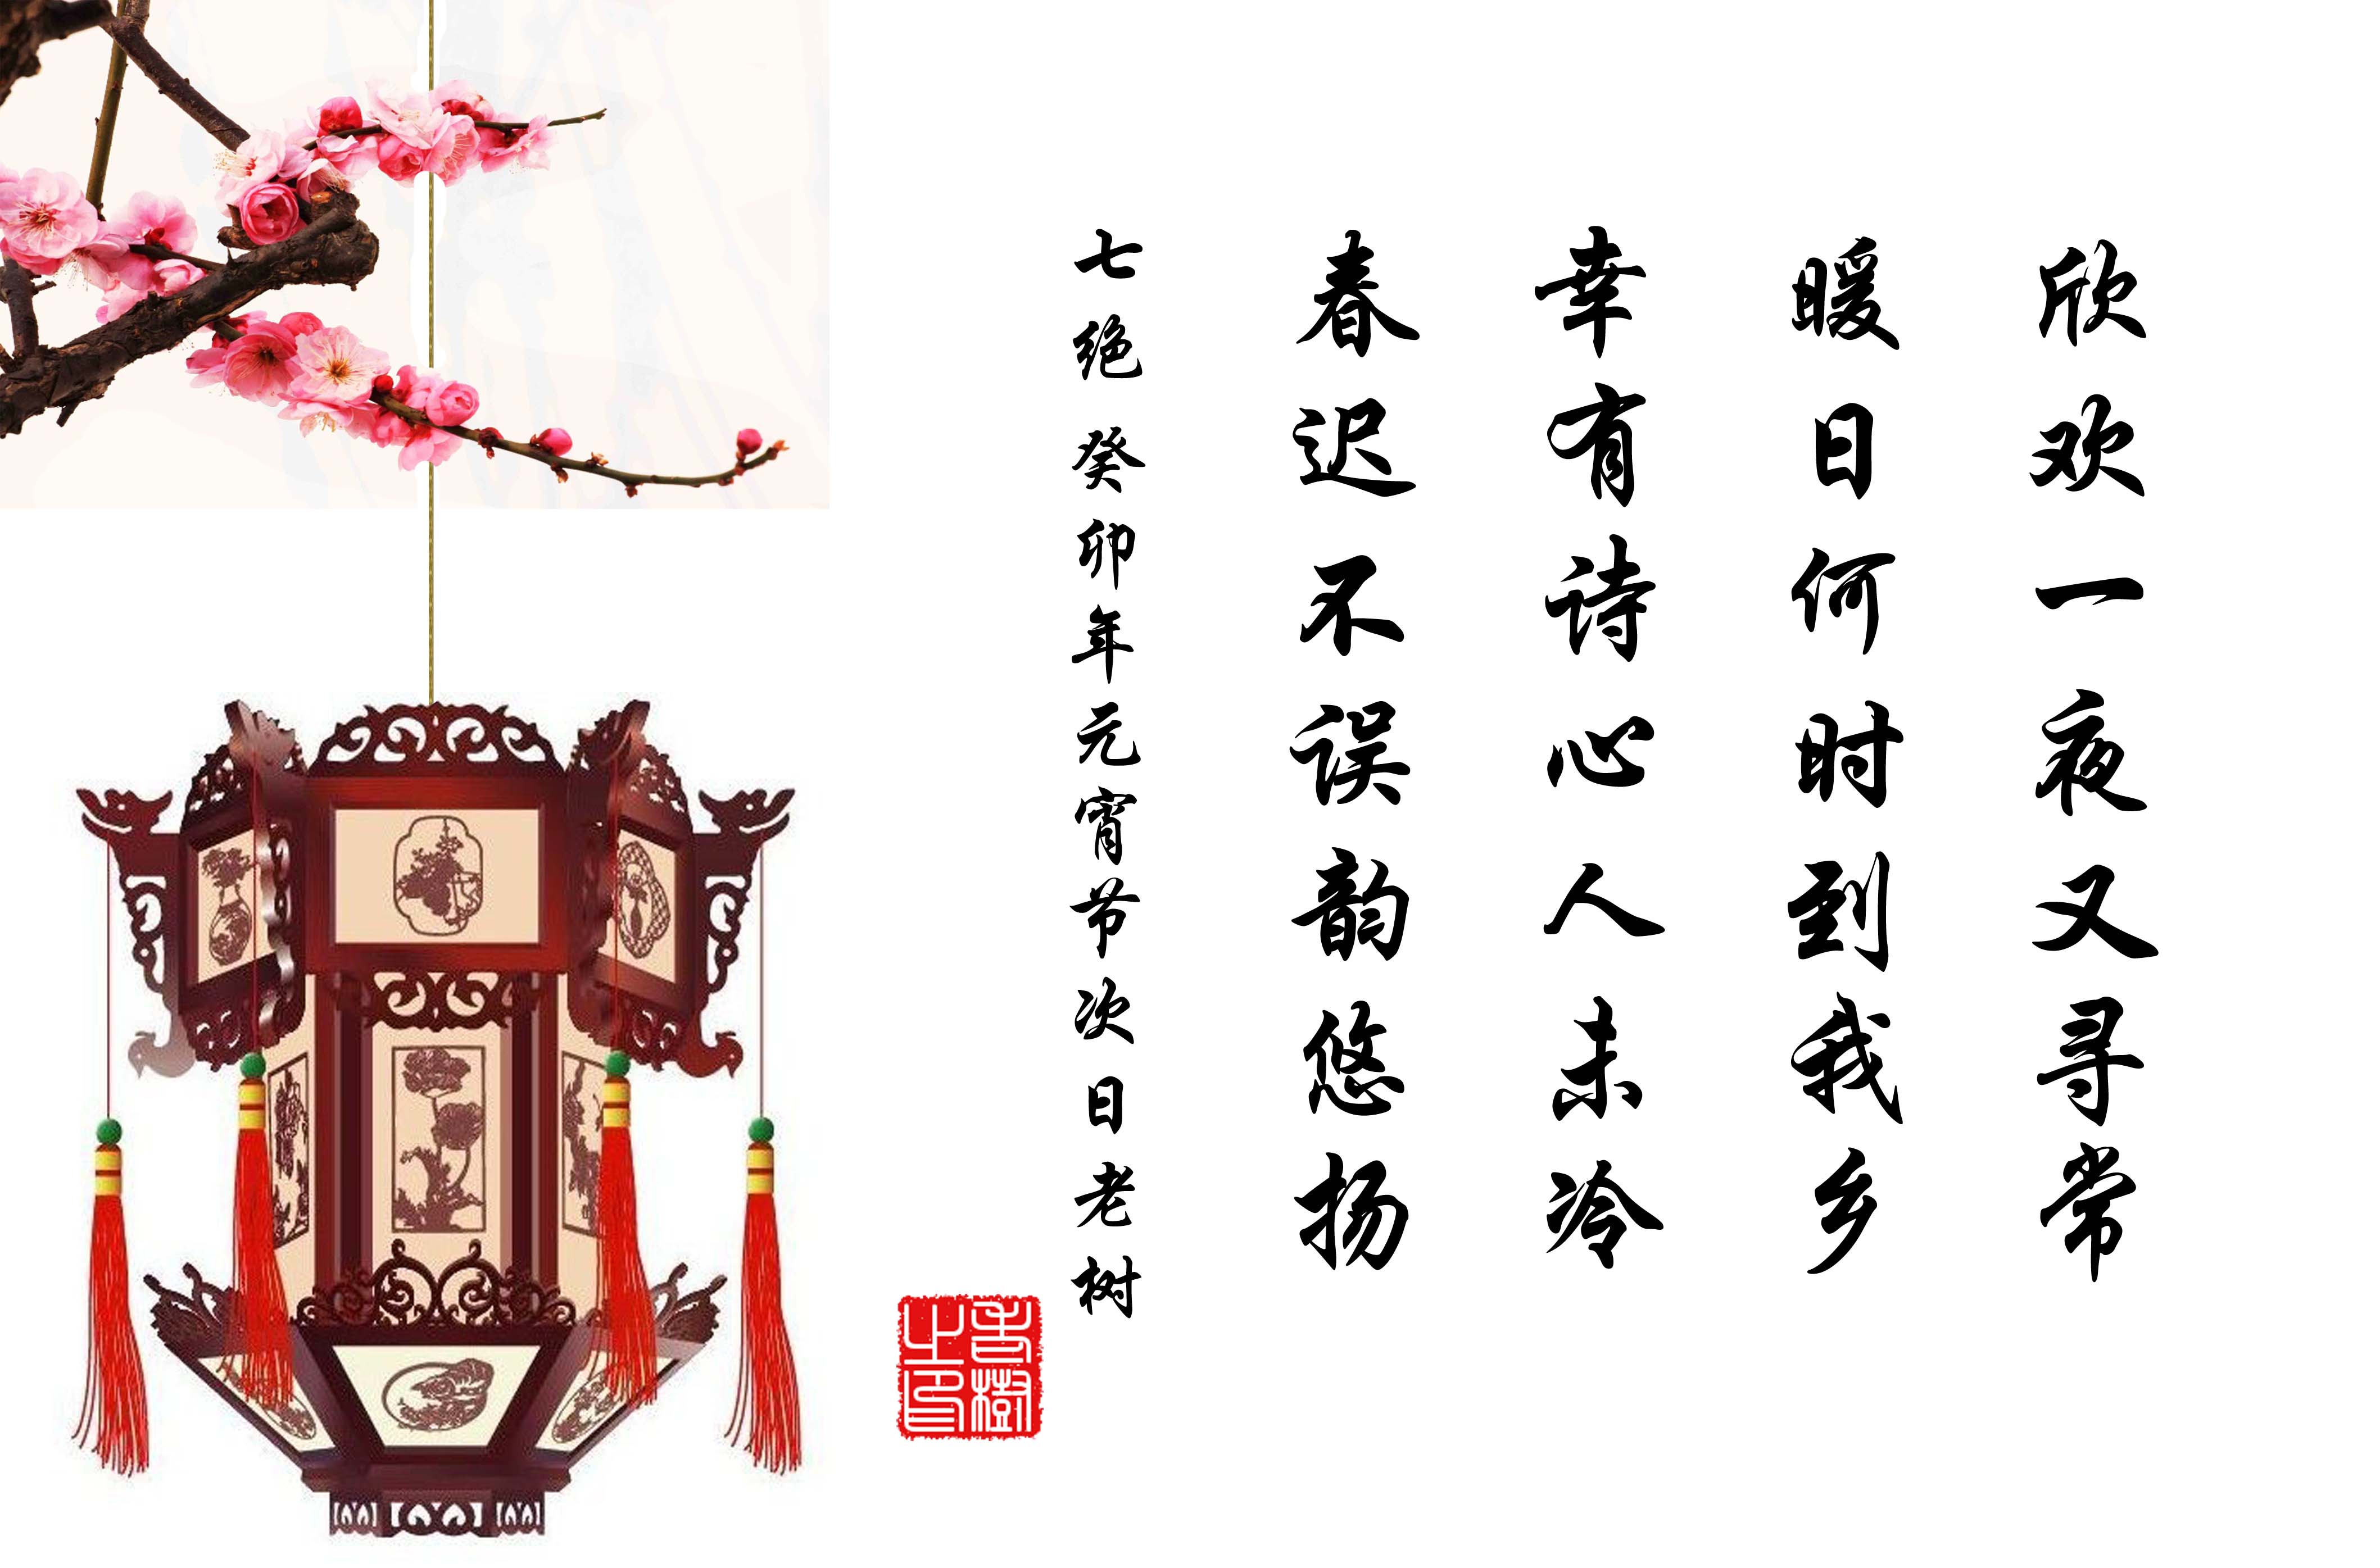 欣欢一夜又寻常
暖日何时到我乡
幸有诗心人未冷
春迟不误韵悠扬
七绝 癸卯年元宵节次日老树
老樹之印